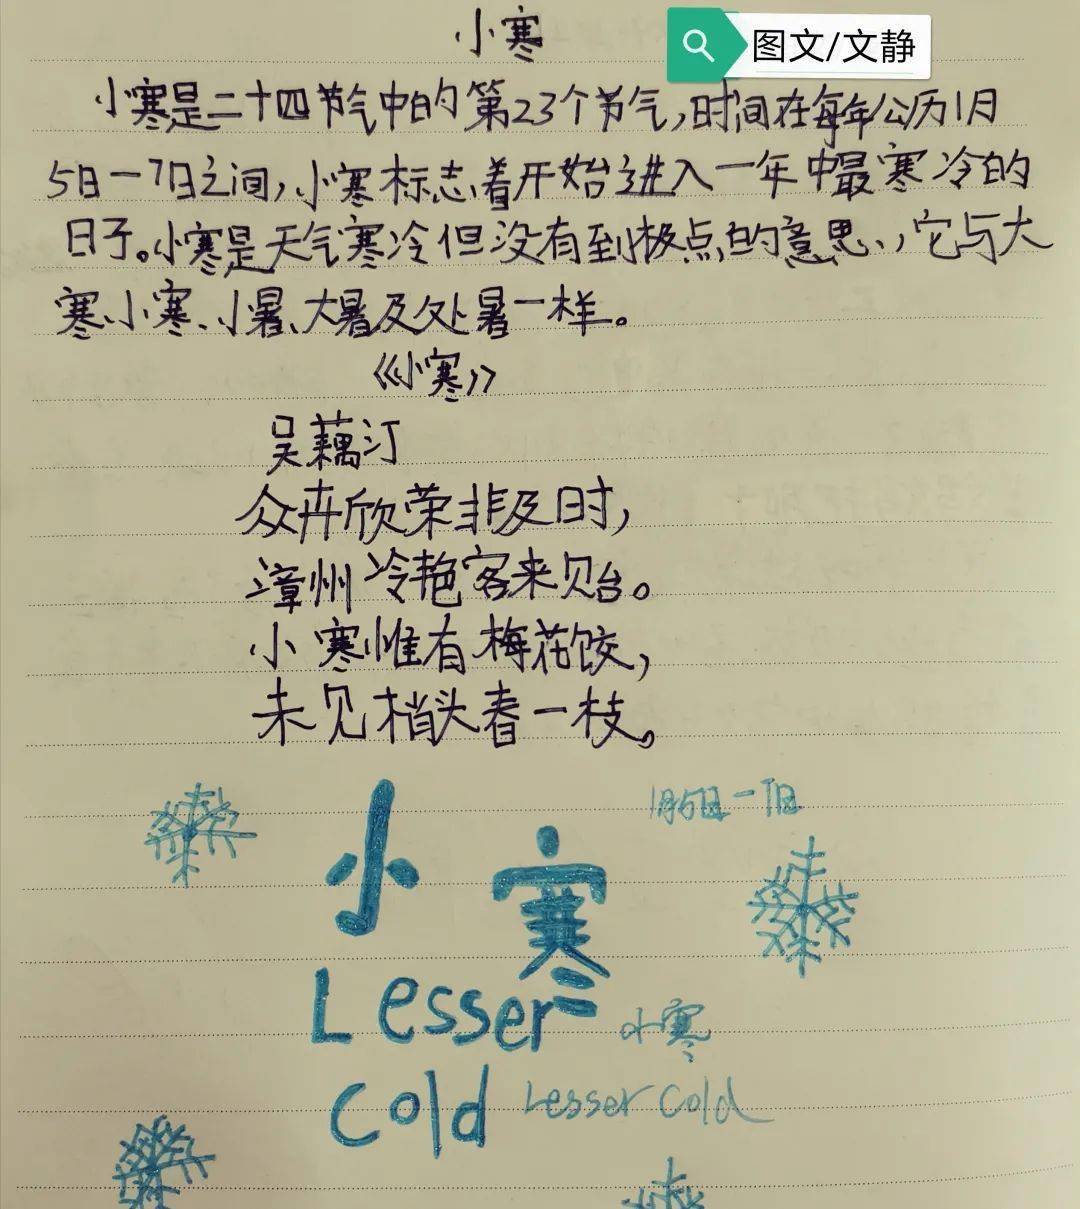 小寒
图文/文静
小寒是二十四节气中的第23个节气,时间在每年公历1月
5日一7日之间,小寒标志着开始进入一年中最寒冷的
日子。小寒是天气寒冷但没有到极点的意思,它与大
寒、小寒、小暑、大暑及处暑一样。
《小寒》
吴藕汀
众卉欣荣非及时,
漳州冷艳客来贻。
小寒惟有梅花饺,
未见梢头春一枝。
1月5日一7日
小寒
Lesser
小寒
Cold
Lesser Cold